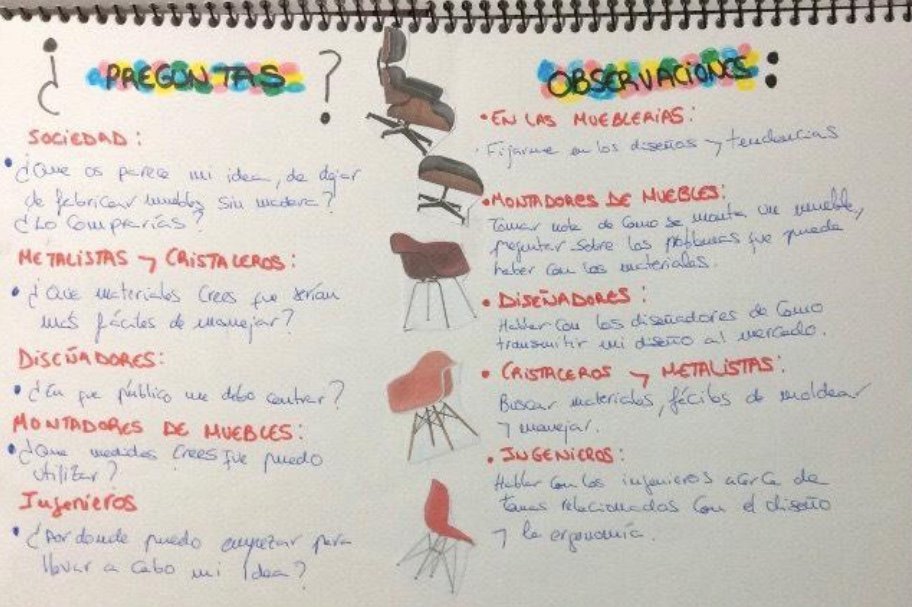 ¿ PREGUNTAS ?
SOCIEDAD:
• ¿Que os parece mi idea, de dejar
de fabricar muebles sin madera?
¿Lo Comprarías?
METALISTAS y CRISTALEROS:
• ¿Que materiales Crees que serían
más fáciles de manejar?
DISEÑADORES:
• ¿En que público me debo centrar?
MONTADORES DE MUEBLES:
• ¿Que medidas Crees que puedo
utilizar?
Ingenieros
• ¿Por donde puedo empezar para
llevar a Cabo mi Idea?
OBSERVACIONES:
• EN LAS MUEBLERIAS:
. Fijarme en los diseños y tendencias
• MONTADORES DE MUEBLES:
Tomar nota de Como se monta un mueble,
preguntar sobre los problemas que pueda
haber con los materiales.
• DISEÑADORES:
Hablar con los diseñadores de Como
transmitir mi diseño al mercado.
• CRISTALEROS y METALISTAS:
Buscar materiales, fáciles de moldear
y manejar.
• INGENIEROS:
Hablar con los ingenieros acerca de
temas relacionados con el diseño
y la ergonomía.